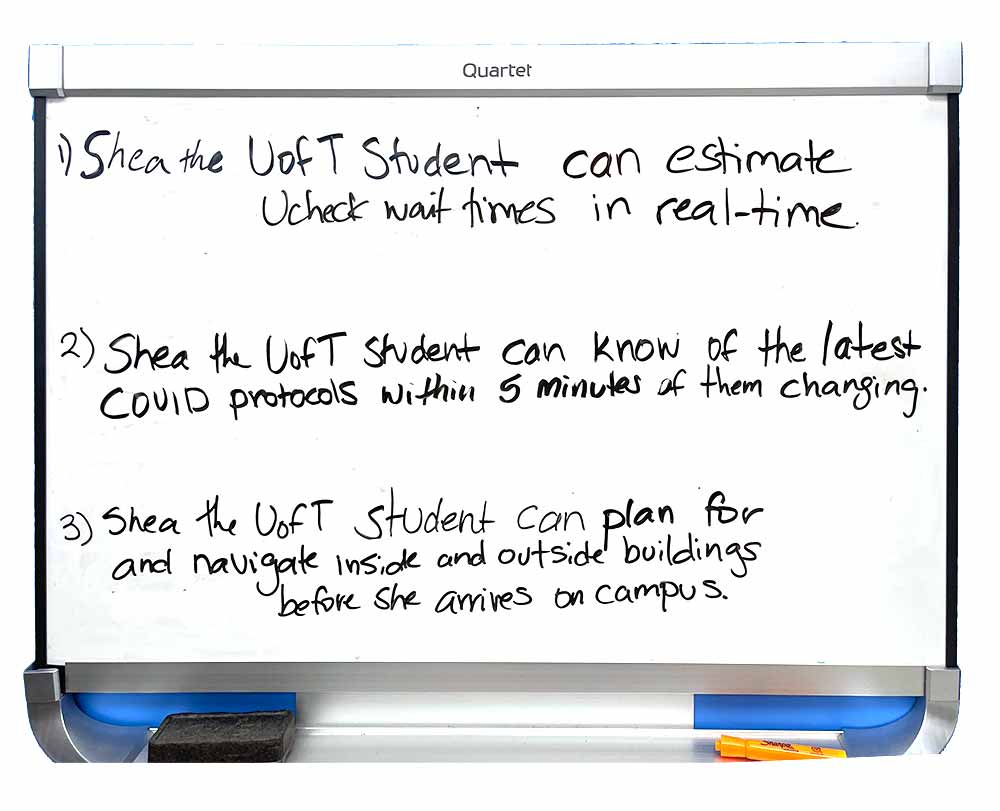 Quartet
1) Shea the UofT Student can estimate
Ucheck wait times in real-time.
2) Shea the UofT student can know of the latest
COVID protocols within 5 minutes of them changing.
3) Shea the UofT student can plan for
and navigate inside and outside buildings
before she arrives on campus.
Sharpie